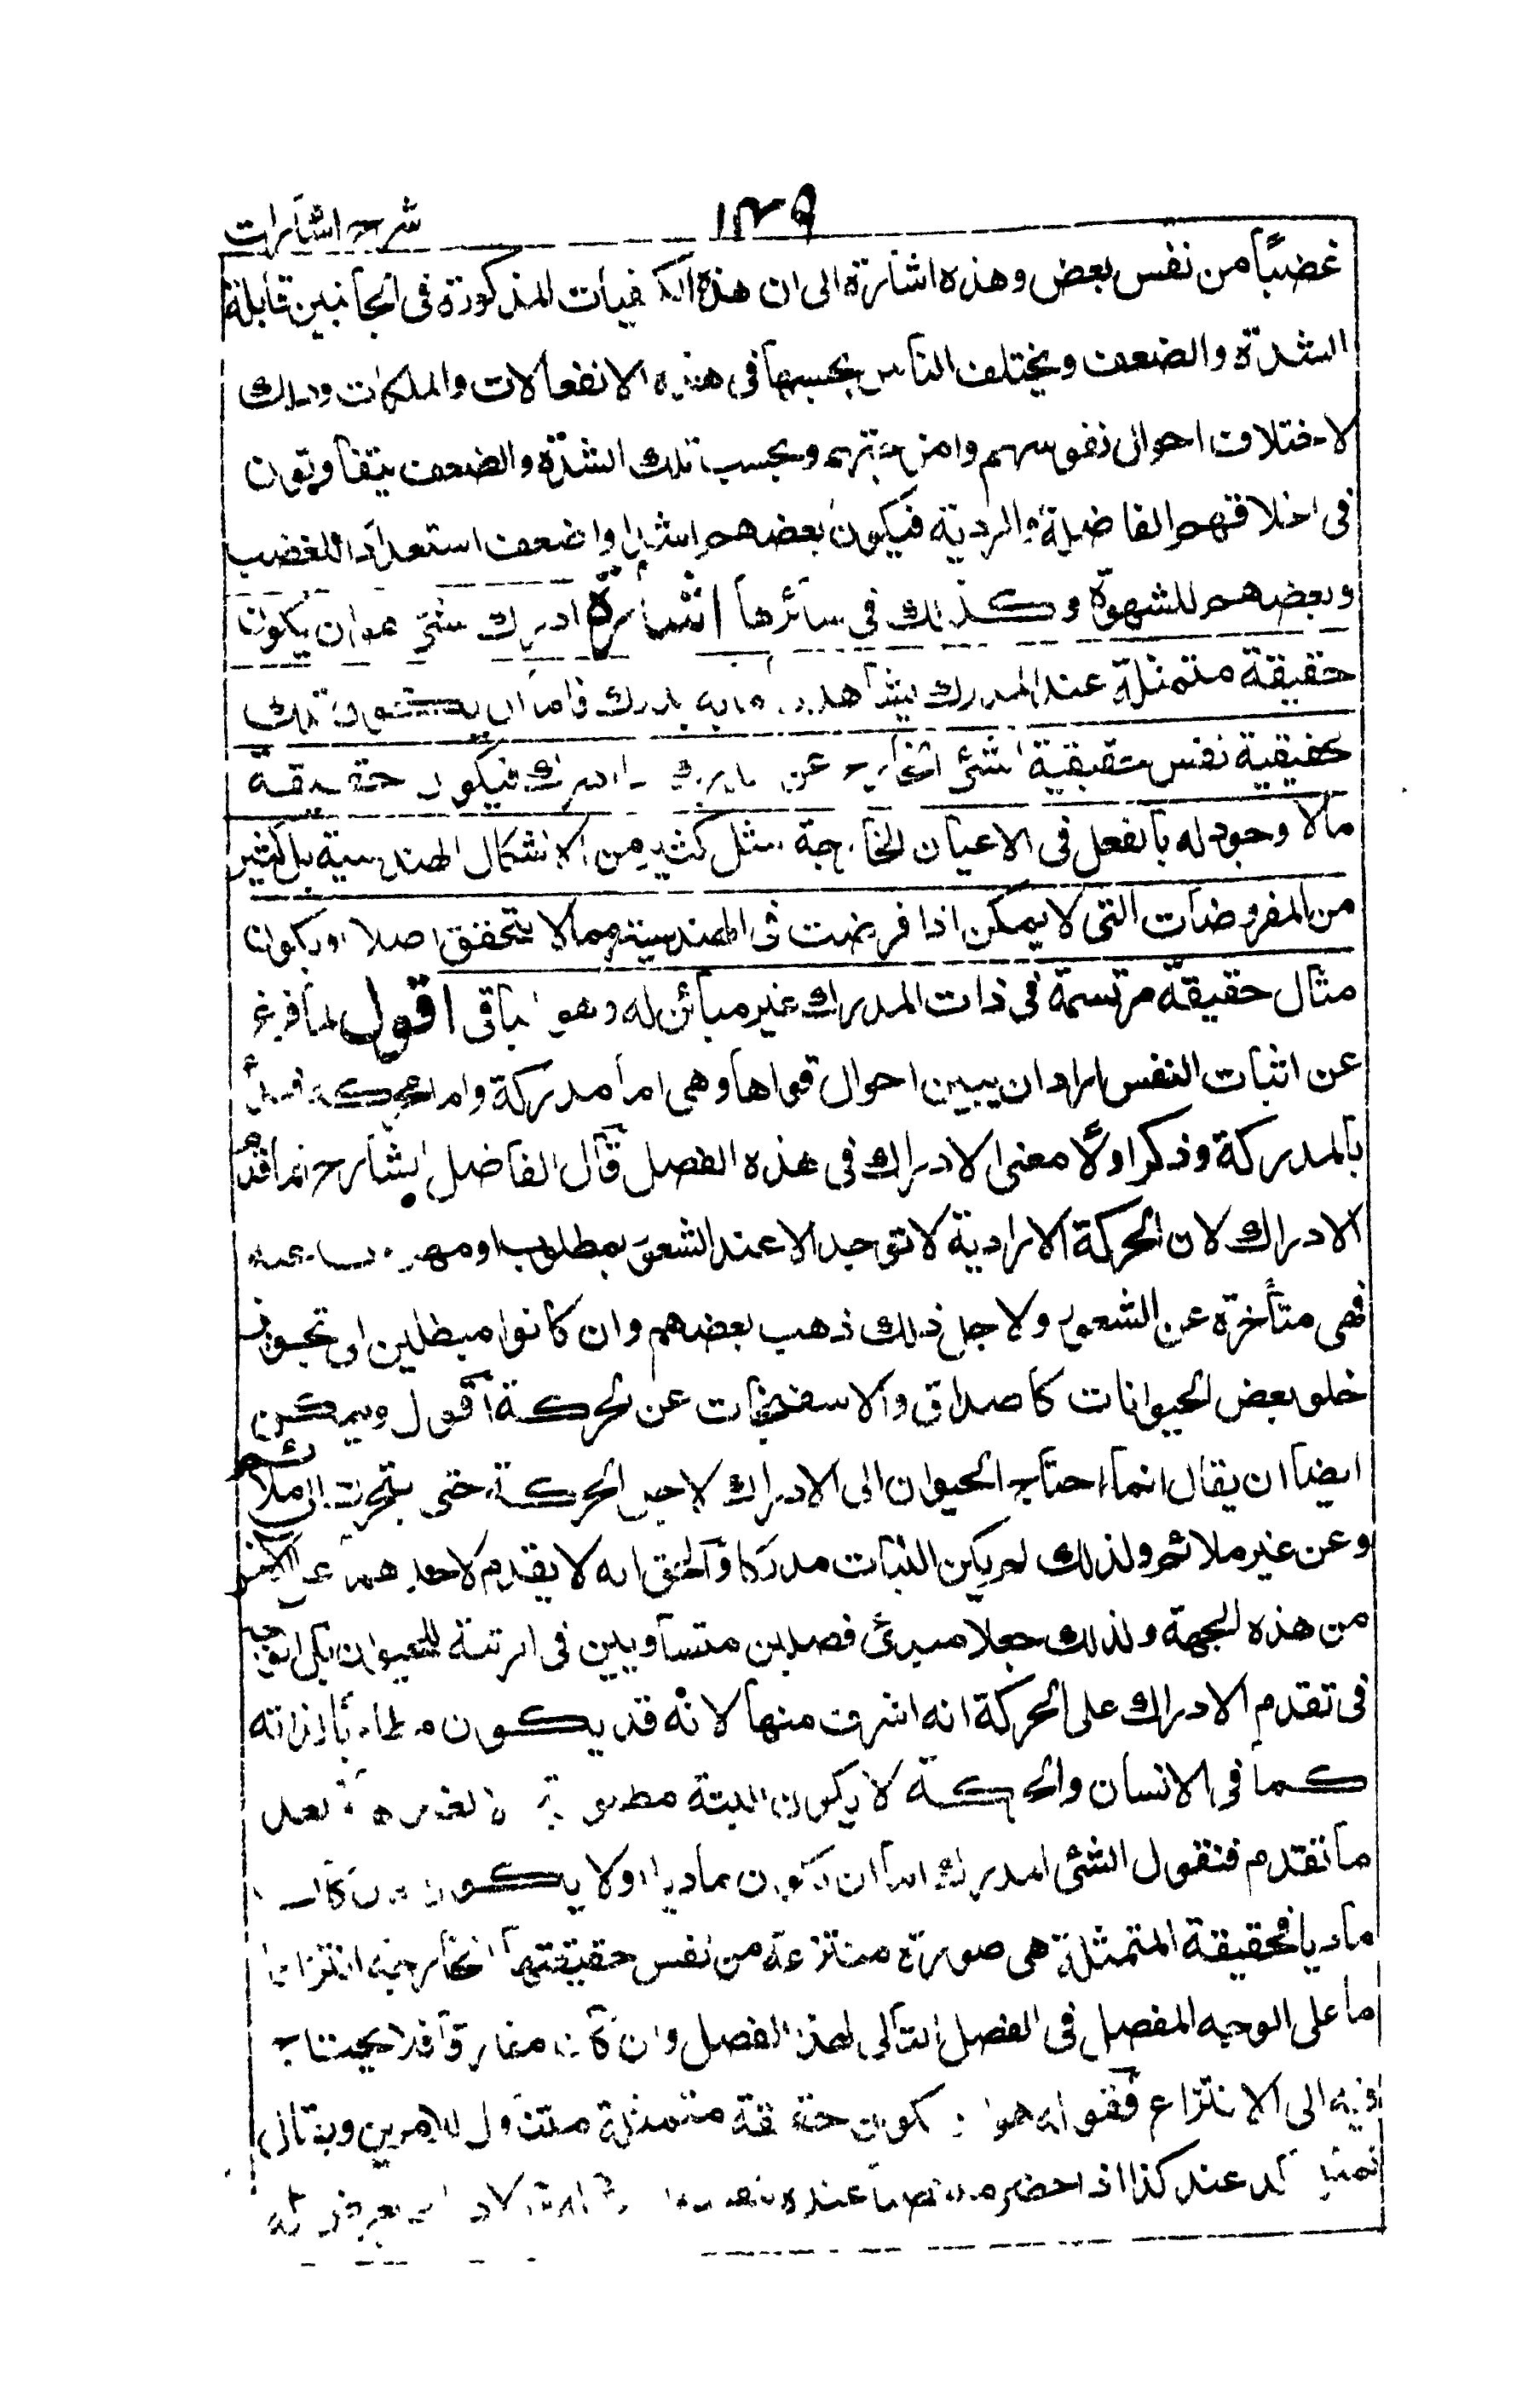 شرح اشارات
١٣٩
غضبًا من نفس بعض وهذه اشارة الى ان هذه الكيفيات المذكورة فى الجانبين قابلة
الشدة والضعف ويختلف الناس بحسبها فى هذه الانفعالات والملكات وذلك
لاختلاف احوال نفوسهم وامزجتهم وبحسب تلك الشدة والضعف يتفاوتون
فى اخلاقهم الفاضلة والردية فيكون بعضهم اشد او اضعف استعدادا للغضب
وبعضهم للشهوة وكذلك فى سائرها اشارة ادراك شئ هو ان يكون
حقيقة متمثلة عند المدرك يشاهدها ما به يدرك فاما ان يكون تلك
حقيقية نفس حقيقية الشئ الخارج عن المدرك اذا ادرك فيكون حقيقة
مالا وجود له بالفعل فى الاعيان الخارجة مثل كثير من الاشكال الهندسية بل كثير
من المفروضات التى لا يمكن اذا فرضت فى الهندسية مما لا يتحقق اصلا او يكون
مثال حقيقة مرتسمة فى ذات المدرك غير مبائن له وهو الباقى اقول لما فرغ
عن اثبات النفس اراد ان يبين احوال قواها وهى اما مدركة واما محركة فبدأ
بالمدركة وذكر اولًا معنى الادراك فى هذه الفصل قال الفاضل الشارح انما قدم
الادراك لان الحركة الارادية لا توجد الا عند الشعور بمطلوب او مهروب عنه
فهى متأخرة عن الشعور ولاجل ذلك ذهب بعضهم وان كانوا مبطلين الى تجويز
خلو بعض الحيوانات كاصداف والاسفنجات عن الحركة اقول ويمكن
ايضا ان يقال انما احتاج الحيوان الى الادراك لاجل الحركة حتى يتحرك الى ملائم
وعن غير ملائم ولذلك لم يكن النبات مدركا والحق انه لا يقدم لاحدهما على الاخر
من هذه الجهة ولذلك جعلا مبدئ فصلين متساويين فى الرتبة للحيوان بل الوجه
فى تقدم الادراك على الحركة انه اشرف منها لانه قد يكون مطلوبا لذاته
كما فى الانسان والحركة لا يكون البتة مطلوبة الا لغيرها فبعد
ما تقدم فنقول الشئ المدرك اما ان يكون ماديا او لا يكون فان كان
ماديا فحقيقة المتمثلة هى صورة منتزعة من نفس حقيقتها الخارجية انتزاعا
ما على الوجه المفصل فى الفصل التالى لهذا الفصل وان كان مفارقا فلا يحتاج
فيه الى الانتزاع فقوله هو ان يكون حقيقة متمثلة متناول للامرين ويقال
تمثل كذا عند كذا اذا حضر منتصبا عنده بنفسه